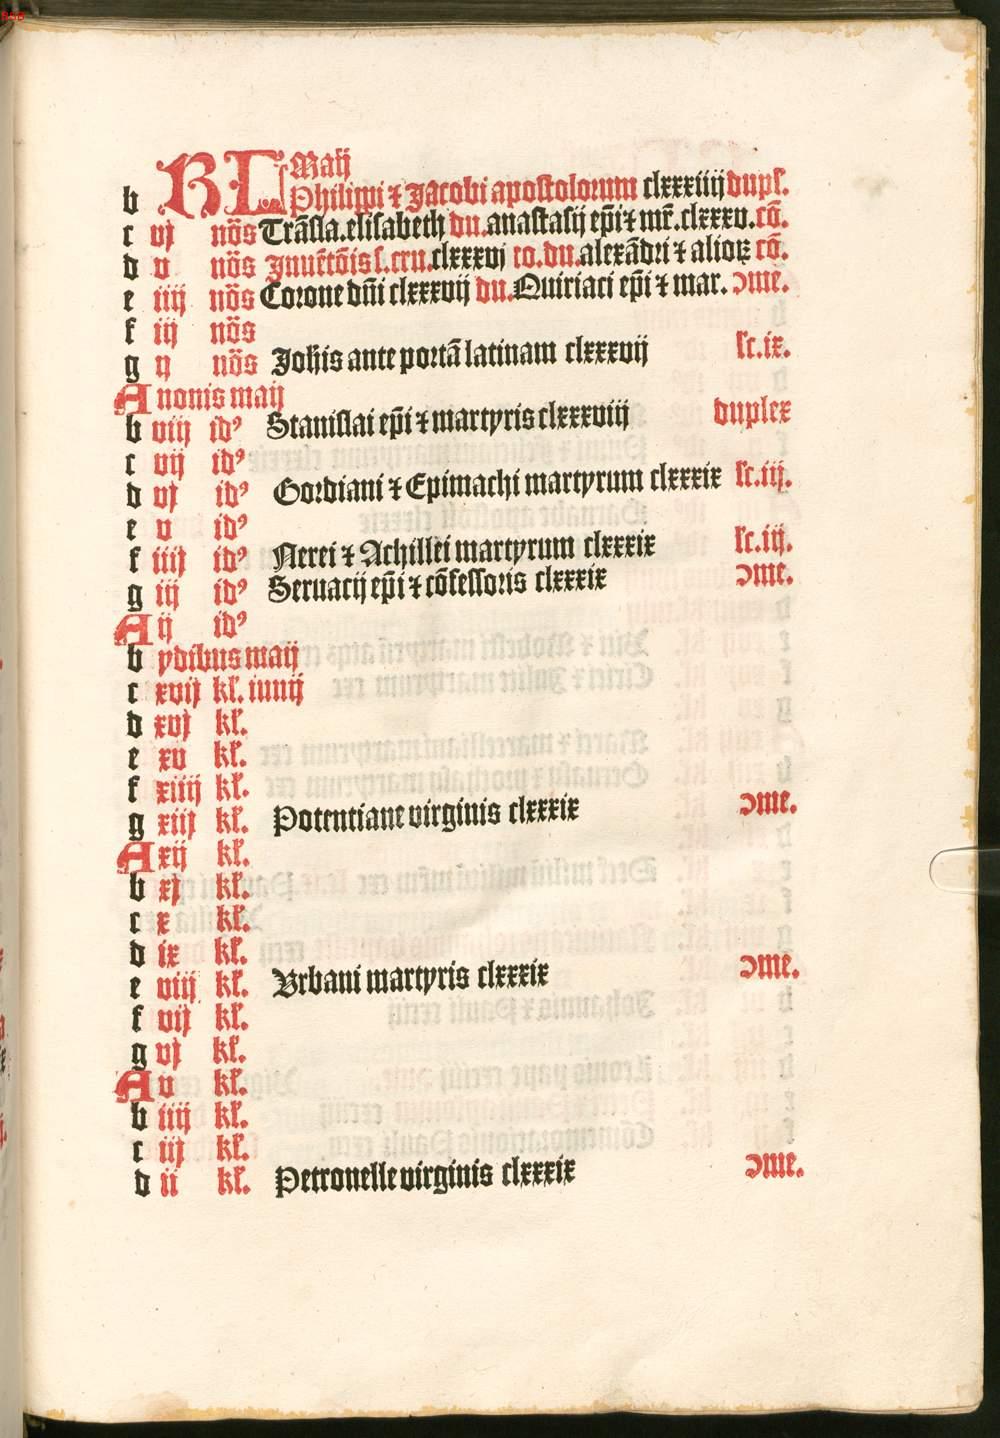 KL Maij
b Philippi ⁊ Jacobi apostolorum clxxxiiij dupl.
c vj nōs Trāsla. elisabeth du. anastasij ep̄i ⁊ mr̄. clxxxv. cō.
d v nōs Inuētōis s. cru. clxxxvj co. du. alexādri ⁊ alioꝝ cō.
e iiij nōs Corone dn̄i clxxxvij du. Quiriaci ep̄i ⁊ mar. ɔme.
f iij nōs
g ij nōs Joh̄is ante portā latinam clxxxvij lc. ix.
A nonis maij
b viij idꝰ Stanislai ep̄i ⁊ martyris clxxxviij duplex
c vij idꝰ
d vj idꝰ Gordiani ⁊ Epimachi martyrum clxxxix lc. iij.
e v idꝰ
f iiij idꝰ Nerei ⁊ Achillei martyrum clxxxix lc. iij.
g iij idꝰ Seruacij ep̄i ⁊ cōfessoris clxxxix ɔme.
A ij idꝰ
b ydibus maij
c xvij kl. iunij
d xvj kl.
e xv kl.
f xiiij kl.
g xiij kl. Potentiane virginis clxxxix ɔme.
A xij kl.
b xj kl.
c x kl.
d ix kl.
e viij kl. Vrbani martyris clxxxix ɔme.
f vij kl.
g vj kl.
A v kl.
b iiij kl.
c iij kl.
d ii kl. Petronelle virginis clxxxix ɔme.